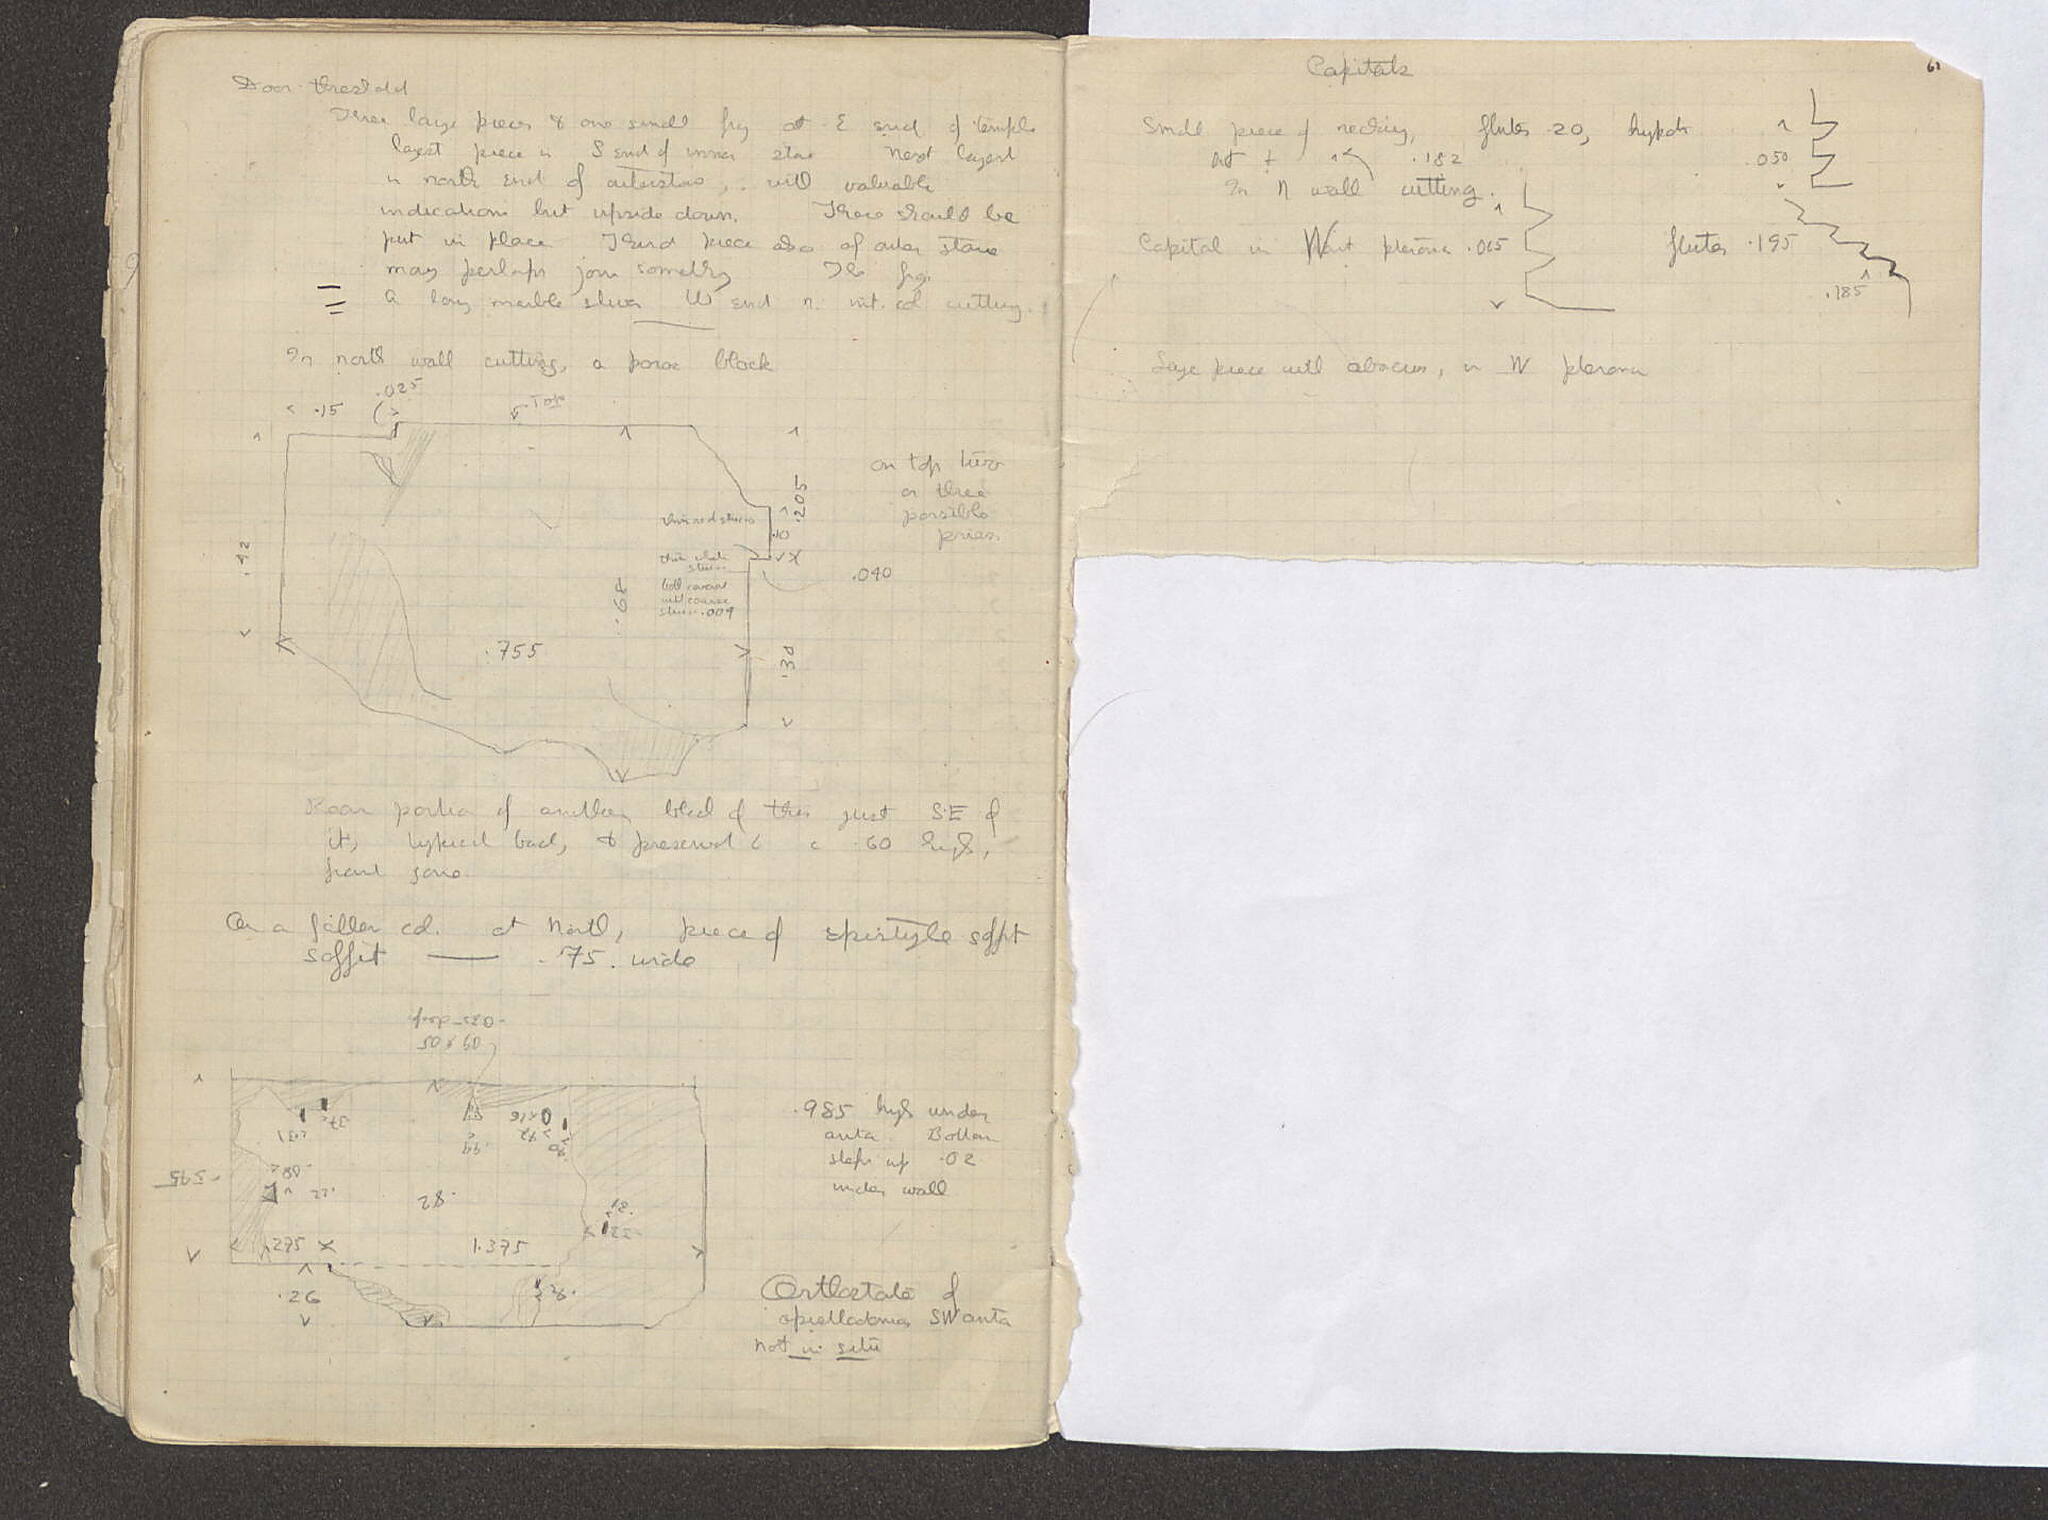 Door threshold
Three large pieces & one small frg at E end of temple
largest piece is S end of inner stone Next largest
is north end of outer stone, with valuable
indications but upside down. These should be
put in place Third piece also of outer stone
may perhaps join something The frg.
a long marble sliver W end n. int. col cutting.
In north wall cutting, a poros block
.025
.15
Top
.205
.10
.42
.68
thin red stucco
thin white stucco
both covered
with coarse
stucco .009
.040
on top two
or three
possible
pries.
.755
.38
Rear portion of another block of this just S.E of
it, typical back, & preserved c .60 high,
front gone.
On a fallen col. at North, piece of epistyle soffit
soffit — .75. wide
.035 deep
.09 x .05
.595
.37
.31
.08
.22
.82
.44
.42
.90
.31
.22
.275
1.375
.26
.28
.985 high under
anta Bottom
steps up .02
under wall
Orthostate of
opisthodomos SW anta
not in situ
Capitals
61
Small piece of necking, flutes .20, hypotr
.182
.050
In N wall cutting.
Capital in West pteroma .065
flutes .195
.185
Large piece with abacus, in W pteroma